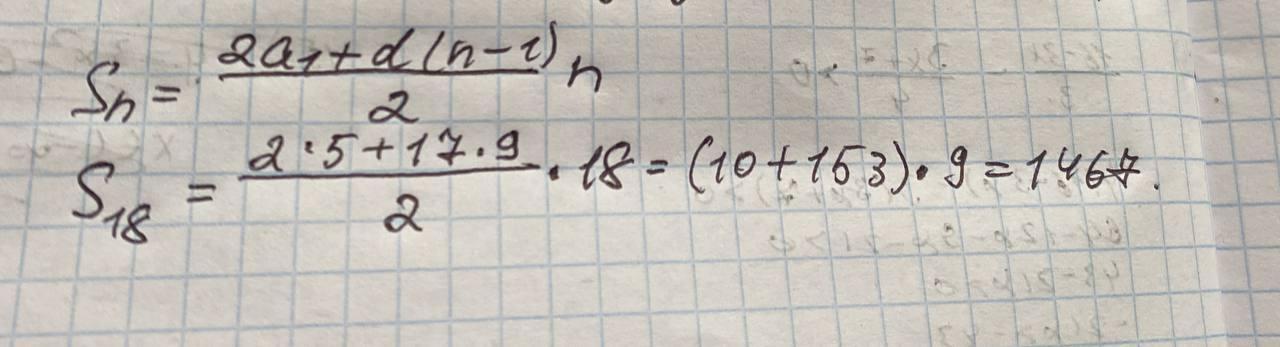 Sn = (2a₁ + d(n-1))/2 n
S₁₈ = (2·5 + 17·9)/2 · 18 = (10 + 153) · 9 = 1467.